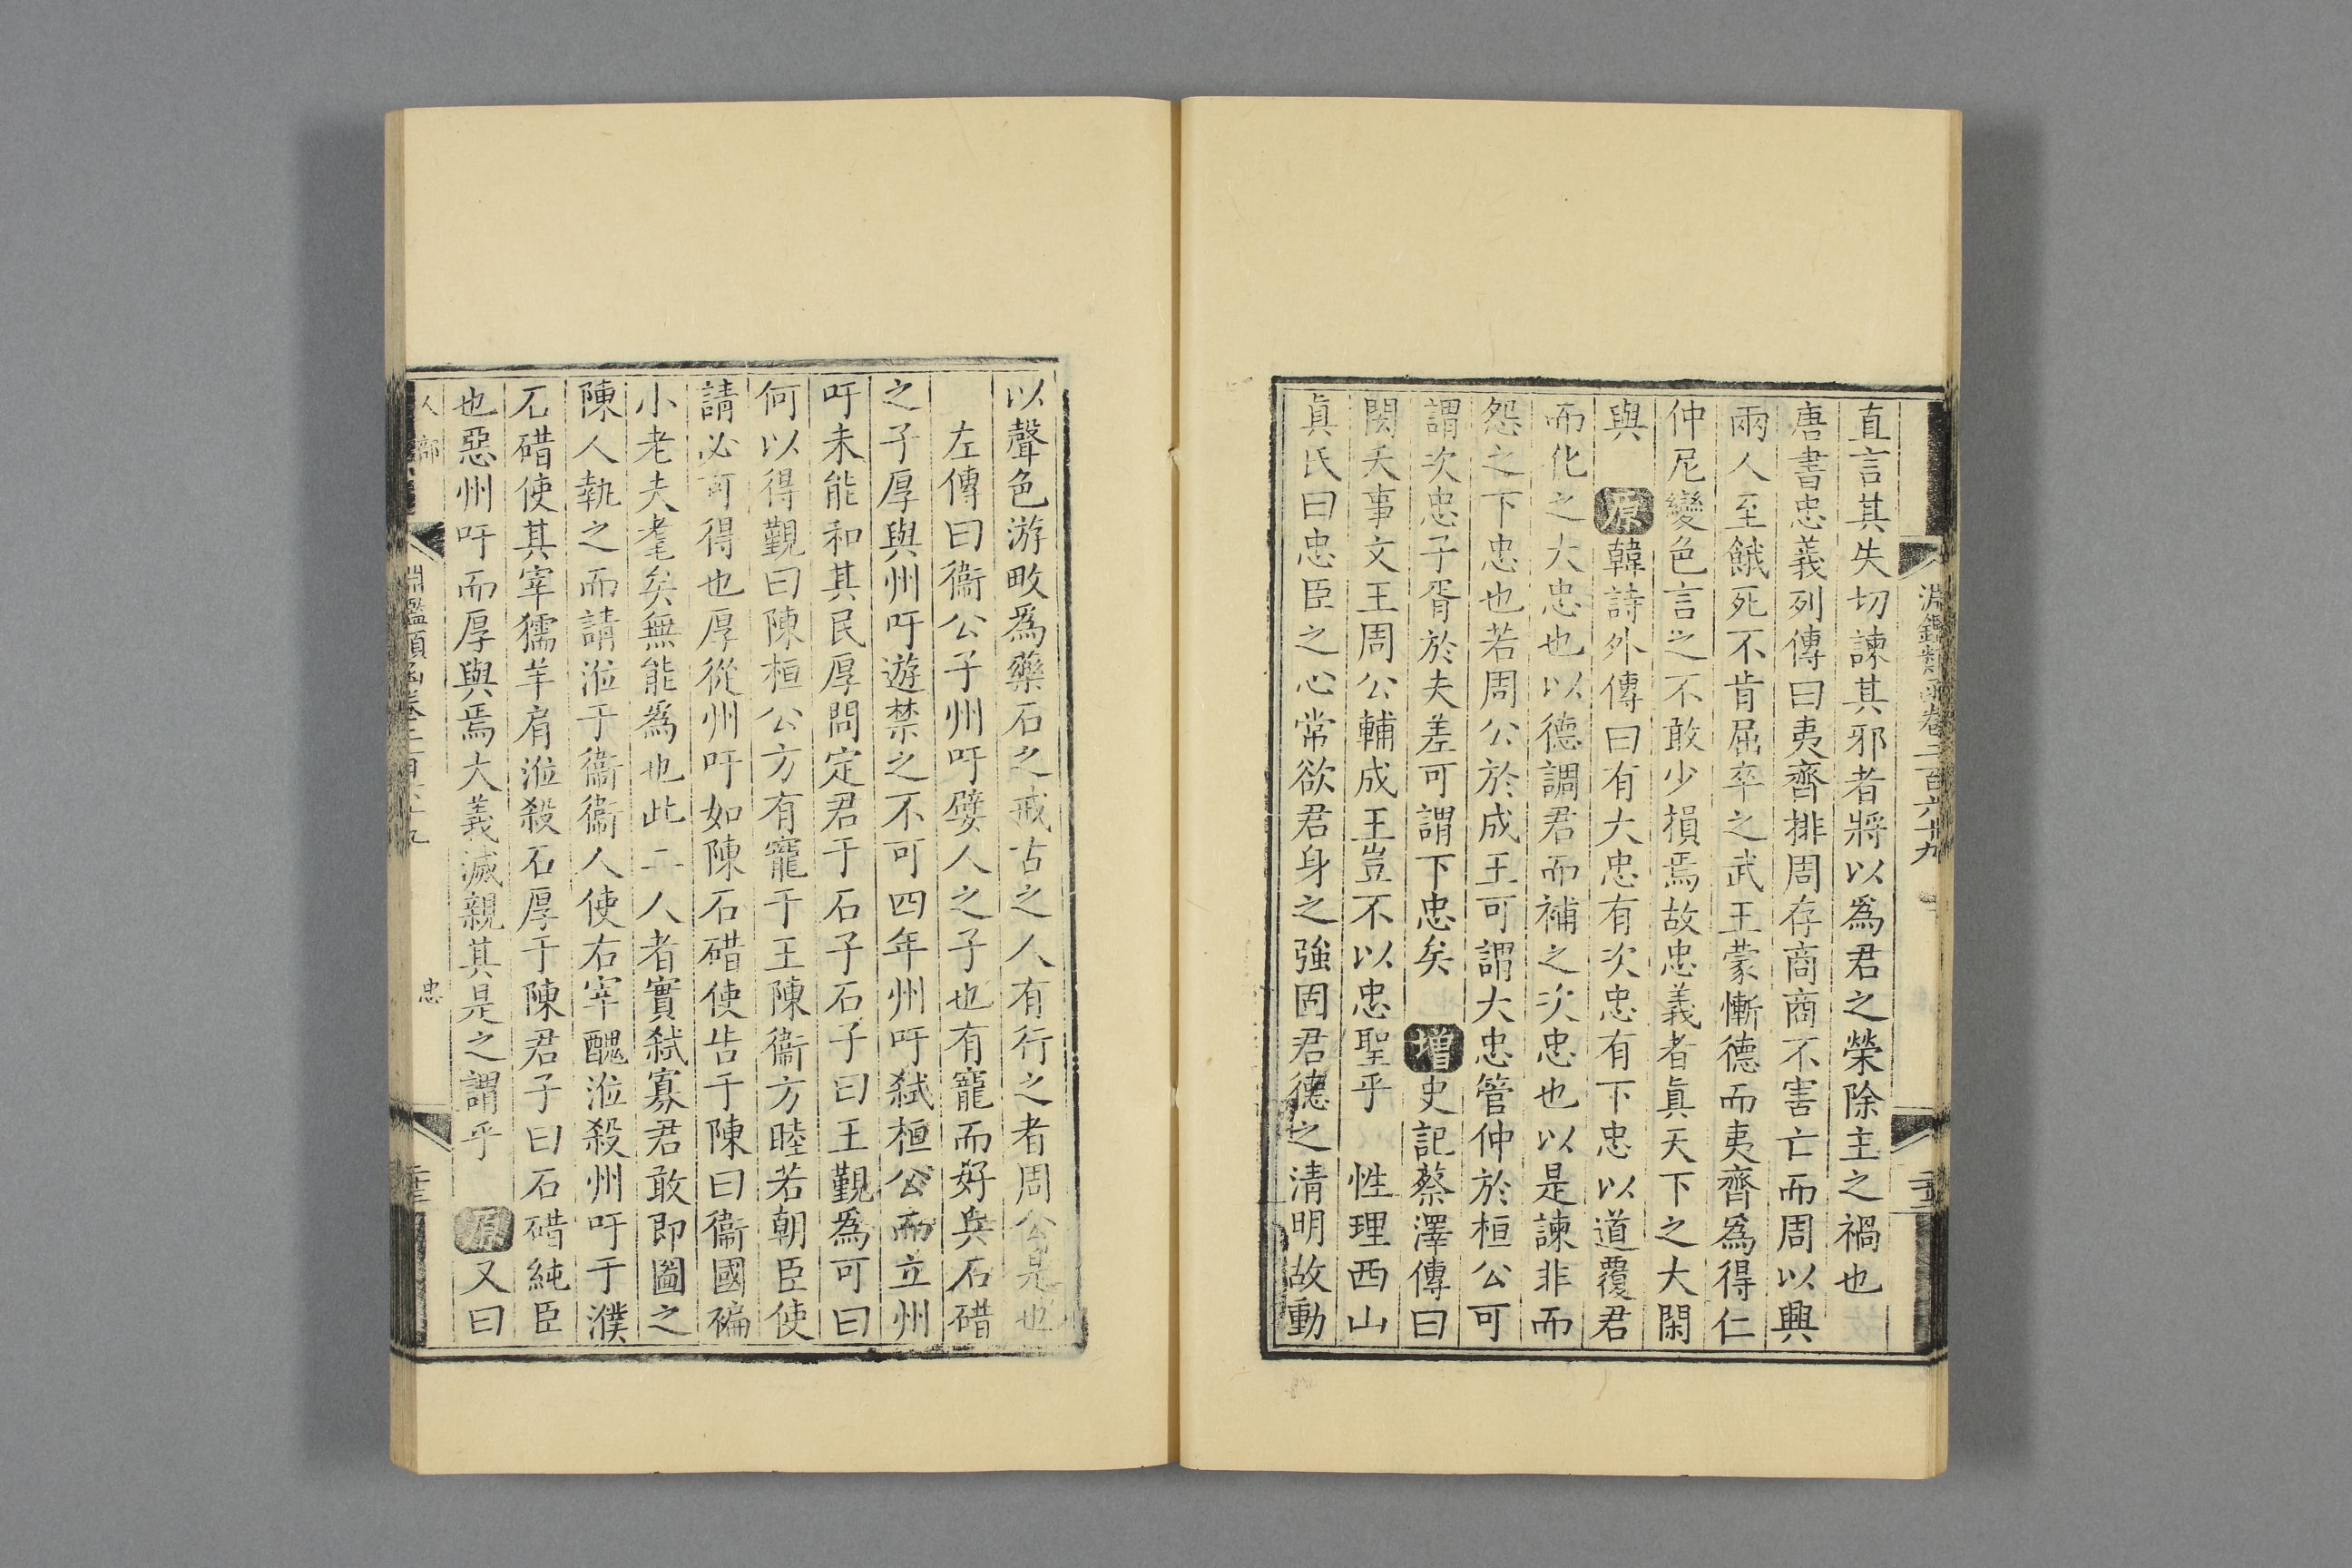 淵鑑類函卷二百六十九
直言其失切諫其邪者將以爲君之榮除主之禍也
唐書忠義列傳曰夷齊排周存商商不害亡而周以興
兩人至餓死不肯屈卒之武王蒙慚德而夷齊爲得仁
仲尼變色言之不敢少損焉故忠義者眞天下之大閑
與 原 韓詩外傳曰有大忠有次忠有下忠以道覆君
而化之大忠也以德調君而補之次忠也以是諫非而
怨之下忠也若周公於成王可謂大忠管仲於桓公可
謂次忠子胥於夫差可謂下忠矣 增 史記蔡澤傳曰
閎夭事文王周公輔成王豈不以忠聖乎 性理西山
眞氏曰忠臣之心常欲君身之強固君德之清明故動
以聲色游畋爲藥石之戒古之人有行之者周公是也
左傳曰衞公子州吁嬖人之子也有寵而好兵石碏
之子厚與州吁遊禁之不可四年州吁弒桓公而立州
吁未能和其民厚問定君于石子石子曰王覲爲可曰
何以得覲曰陳桓公方有寵于王陳衞方睦若朝臣使
請必可得也厚從州吁如陳石碏使告于陳曰衞國褊
小老夫耄矣無能爲也此二人者實弒寡君敢即圖之
陳人執之而請涖于衞衞人使右宰醜涖殺州吁于濮
石碏使其宰獳羊肩涖殺石厚于陳君子曰石碏純臣
也惡州吁而厚與焉大義滅親其是之謂乎 原 又曰
人部 淵鑑類函卷二百六十九 忠